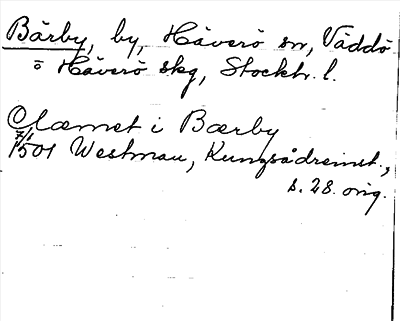 Bärby, by, Häverö sn, Väddö
o Häverö skg, Stockh. l.
Olæmet i Bærby
7/1
1501 Westmau, Kungsådreinst.,
s. 28. orig.